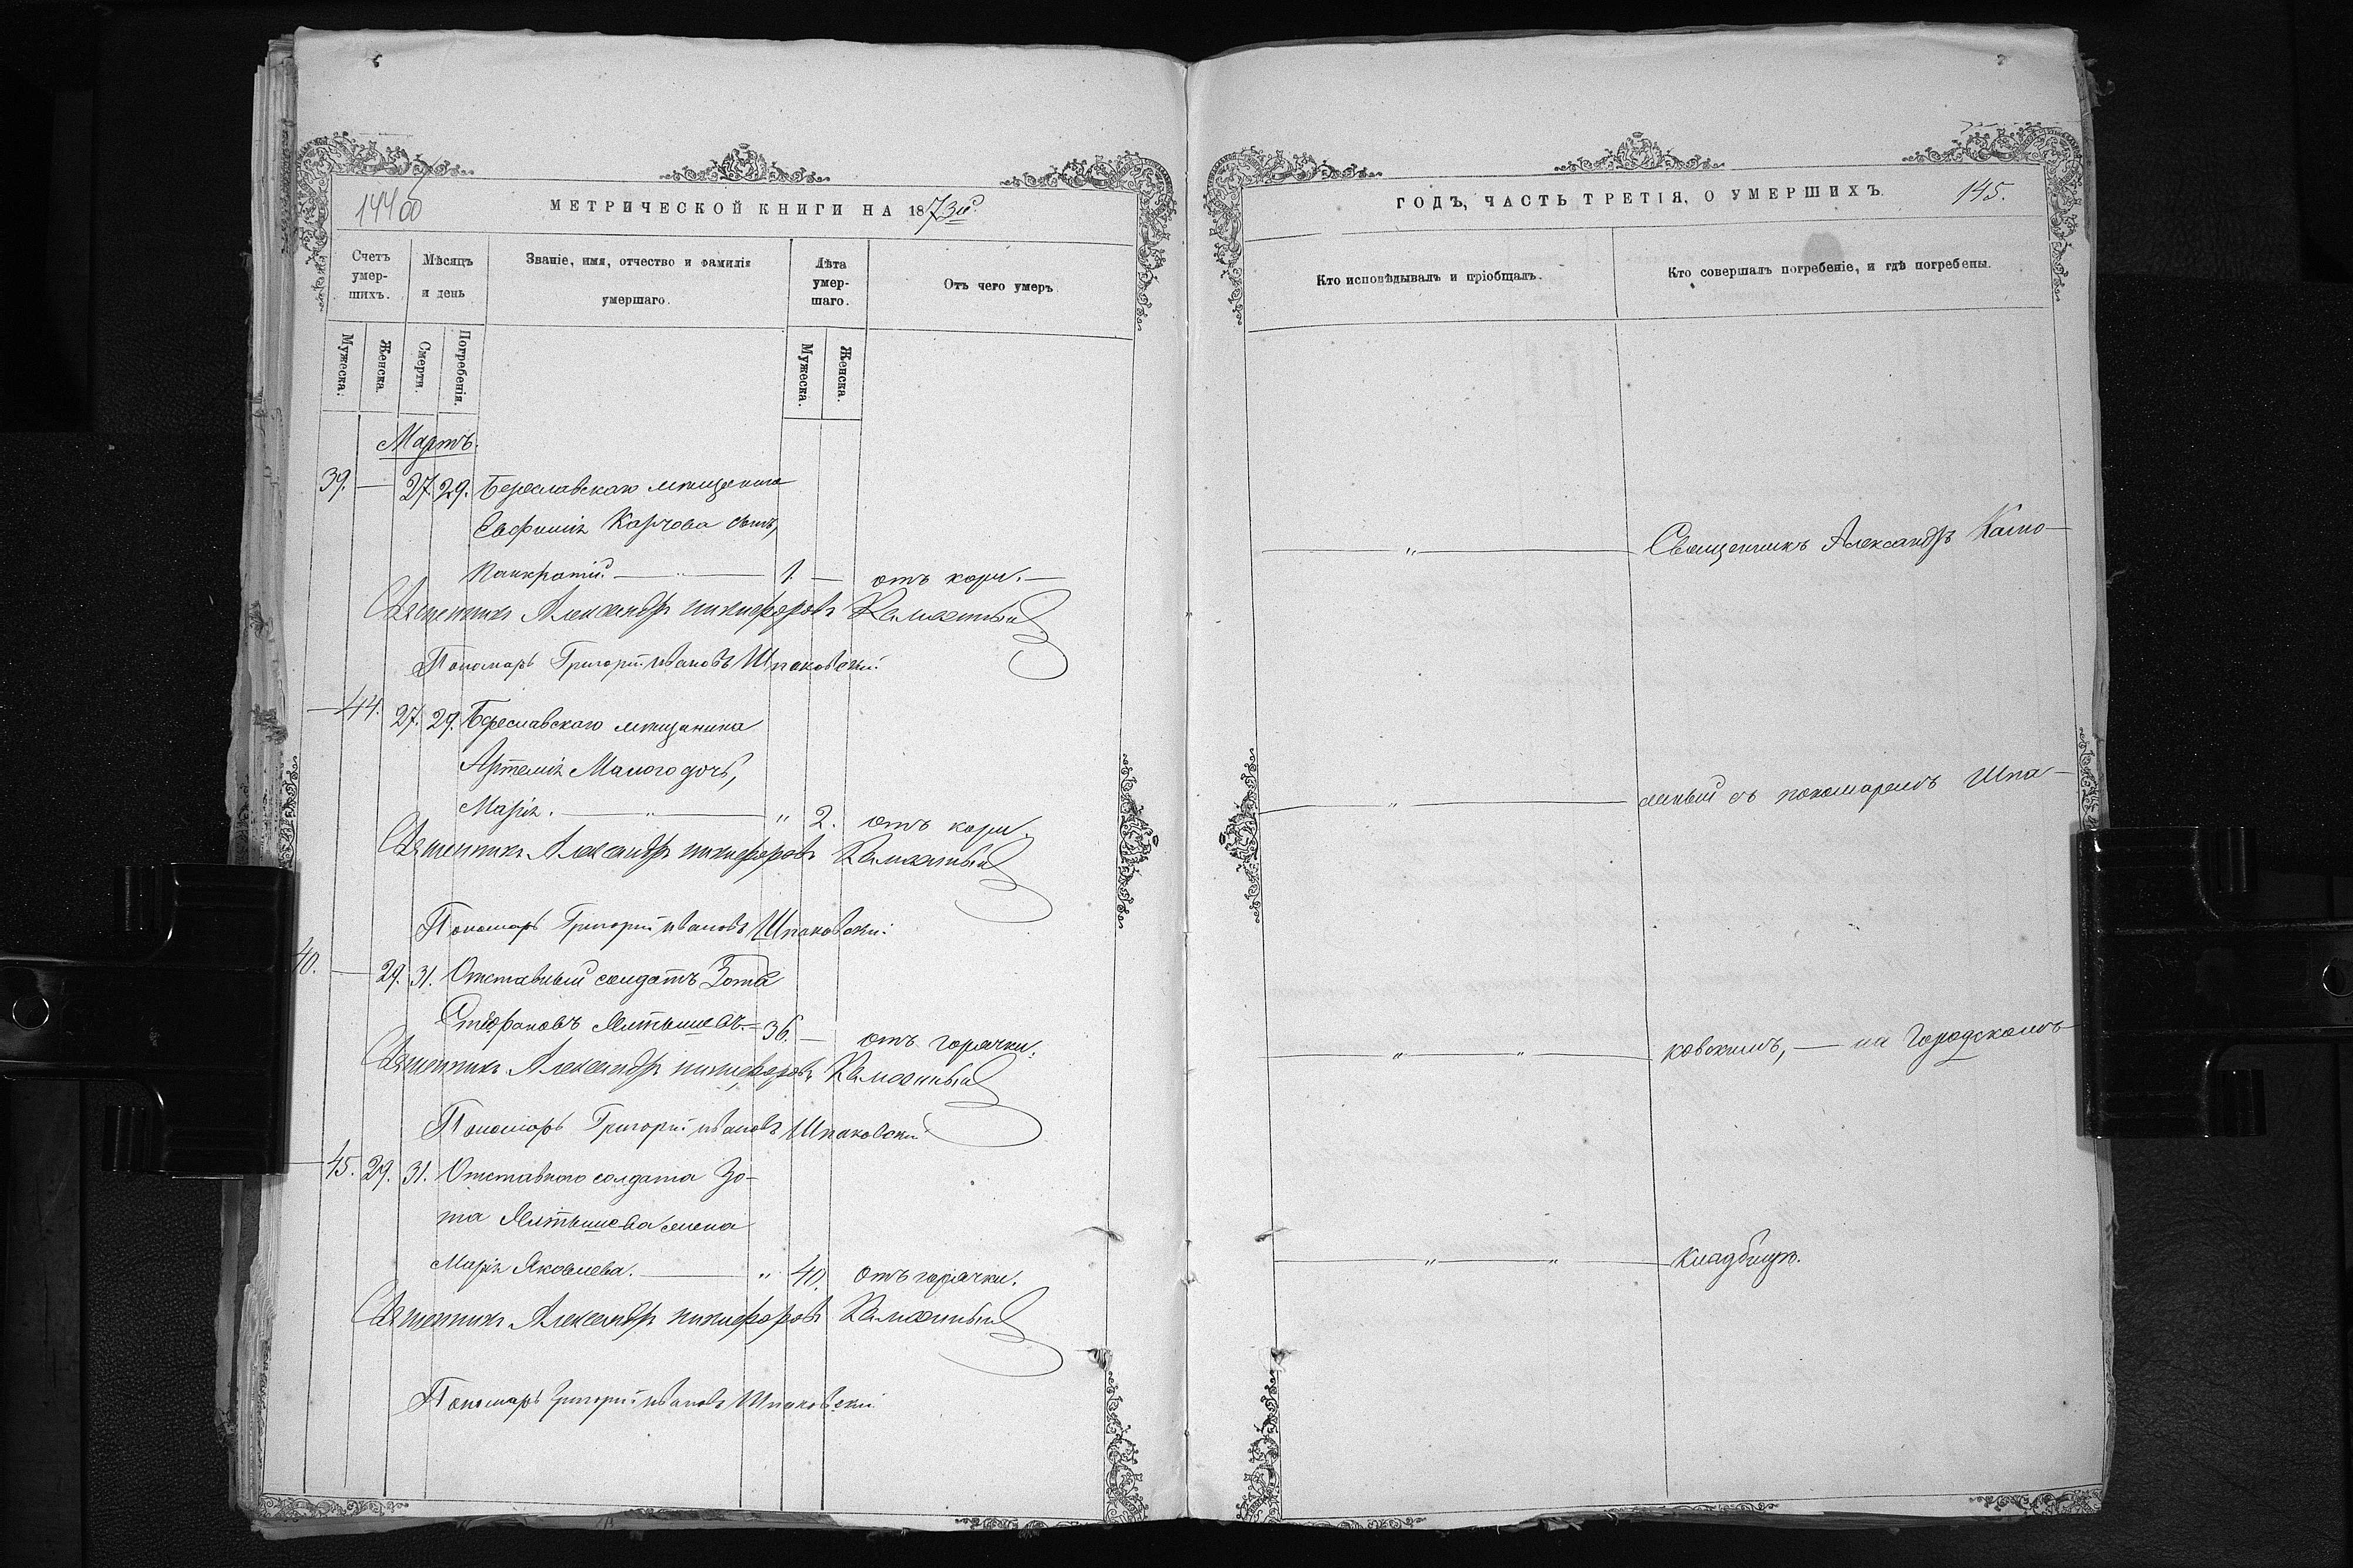 144об
МЕТРИЧЕСКОЙ КНИГИ НА 1873й.
Счетъ умер-шихъ.
Мѣсяцъ и день
Званіе, имя, отчество и фамилія умершаго.
Лѣта умер-шаго.
Отъ чего умеръ
Мужеска.
Женска.
Смерти.
Погребенія.
Мужеска.
Женска.
Мартъ.
39. — 27. 29. Береславскаго мѣщанина
Евфимія Карчова сынъ,
Панкратій. — 1. — отъ кори. —
Священникъ Александръ Никифоровъ
Пономарь Григорій Ивановъ Шпаковскій
— 44. 27. 29. Береславскаго мѣщанина
Артемія Малого дочь,
Марія. — " — " 2. отъ кори.
Священникъ Александръ Никифоровъ
Пономарь Григорій Ивановъ Шпаковскій
40. — 29. 31. Отставный солдатъ Зота
Стефановъ — 36. — отъ горячки.
Священникъ Александръ Никифоровъ
Пономарь Григорій Ивановъ Шпаковскій
— 45. 29. 31. Отставного солдата Зо-
та жена
Марія Яковлева. — " 40. отъ горячки.
Священникъ Александръ Никифоровъ
Пономарь Григорій Ивановъ Шпаковскій
ГОДЪ, ЧАСТЬ ТРЕТІЯ, О УМЕРШИХЪ.
145.
Кто исповѣдывалъ и пріобщалъ.
Кто совершалъ погребеніе, и гдѣ погребены.
— " — Священникъ Александръ
— " — съ пономаремъ Шпа-
— " — " — ковскимъ, — на Городскомъ
— " — " — кладбищѣ.